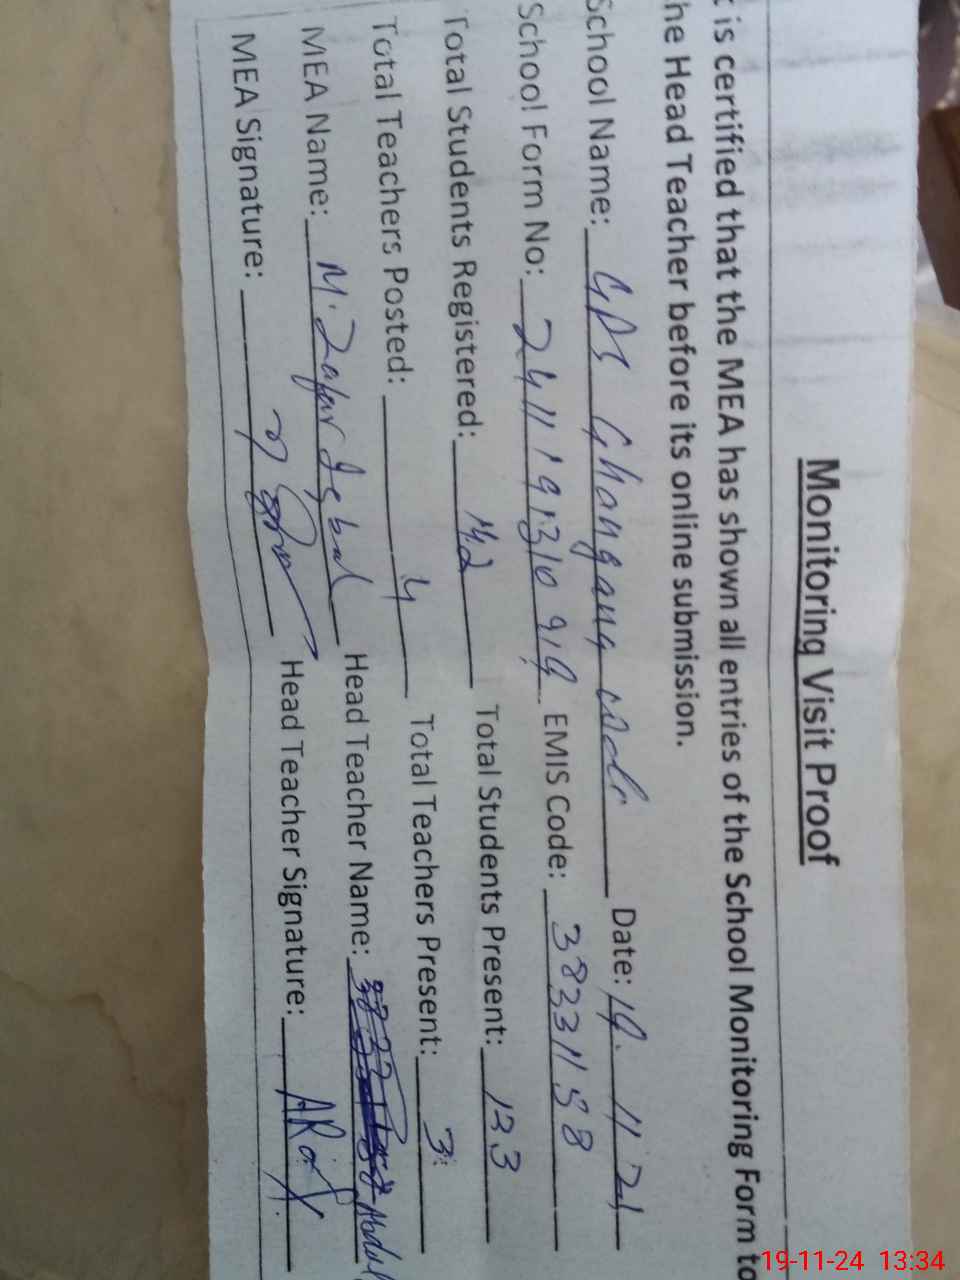 Monitoring Visit Proof
t is certified that the MEA has shown all entries of the School Monitoring Form to
he Head Teacher before its online submission.
School Name: GPS Ghangang Date: 19.11.24
School Form No: 2411191310919 EMIS Code: 38331158
Total Students Registered: 142 Total Students Present: 133
Total Teachers Posted: 4 Total Teachers Present: 3
MEA Name: M. Zafar Iqbal Head Teacher Name: Abdul
MEA Signature: Head Teacher Signature:
19-11-24 13:34